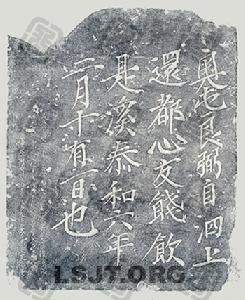 奧屯良弼自泗上
還都心友餞飲
是溪泰和六年
二月十有一日也
LSJT.ORG